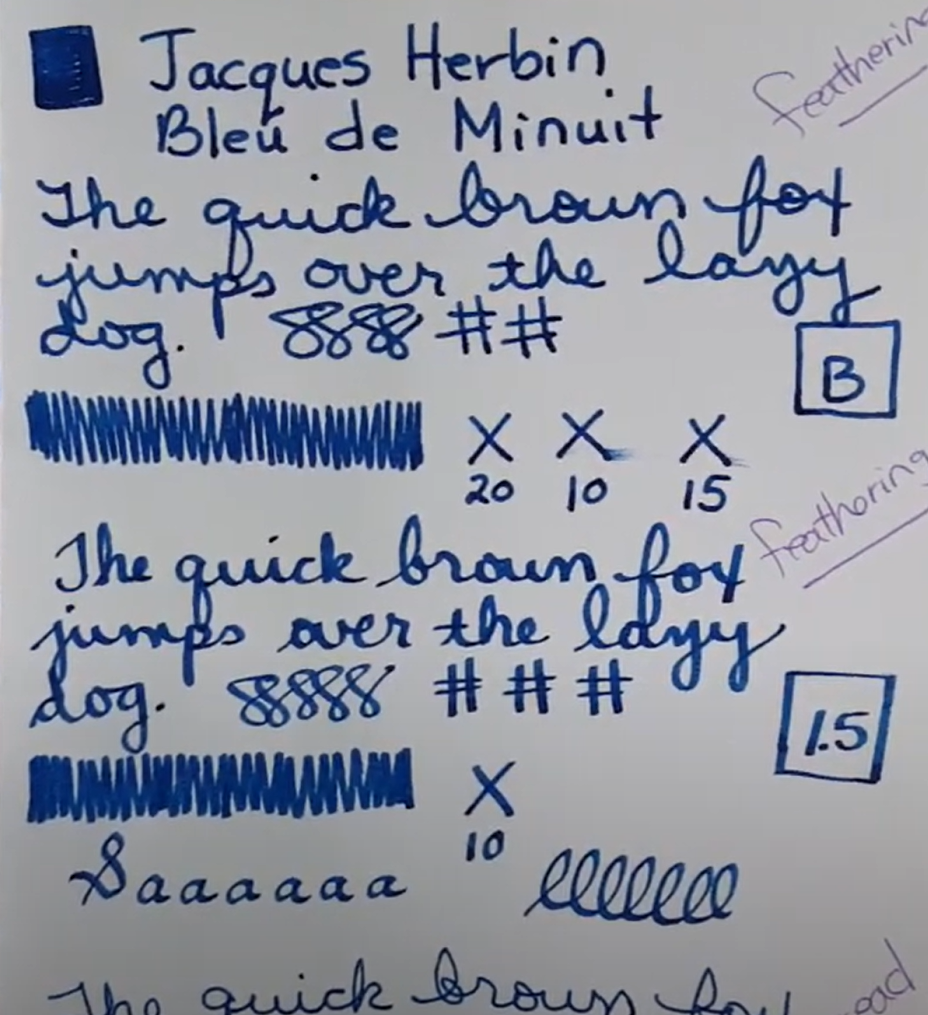 Jacques Herbin
feathering
Bleu de Minuit
The quick brown fox
jumps over the lazy
dog. 8888 ##
B
X X X
20 10 15
feathering
The quick brown fox
jumps over the lazy
dog. 88888 # # #
1.5
X
10
Saaaaaaa
llllllll
The quick brown fox